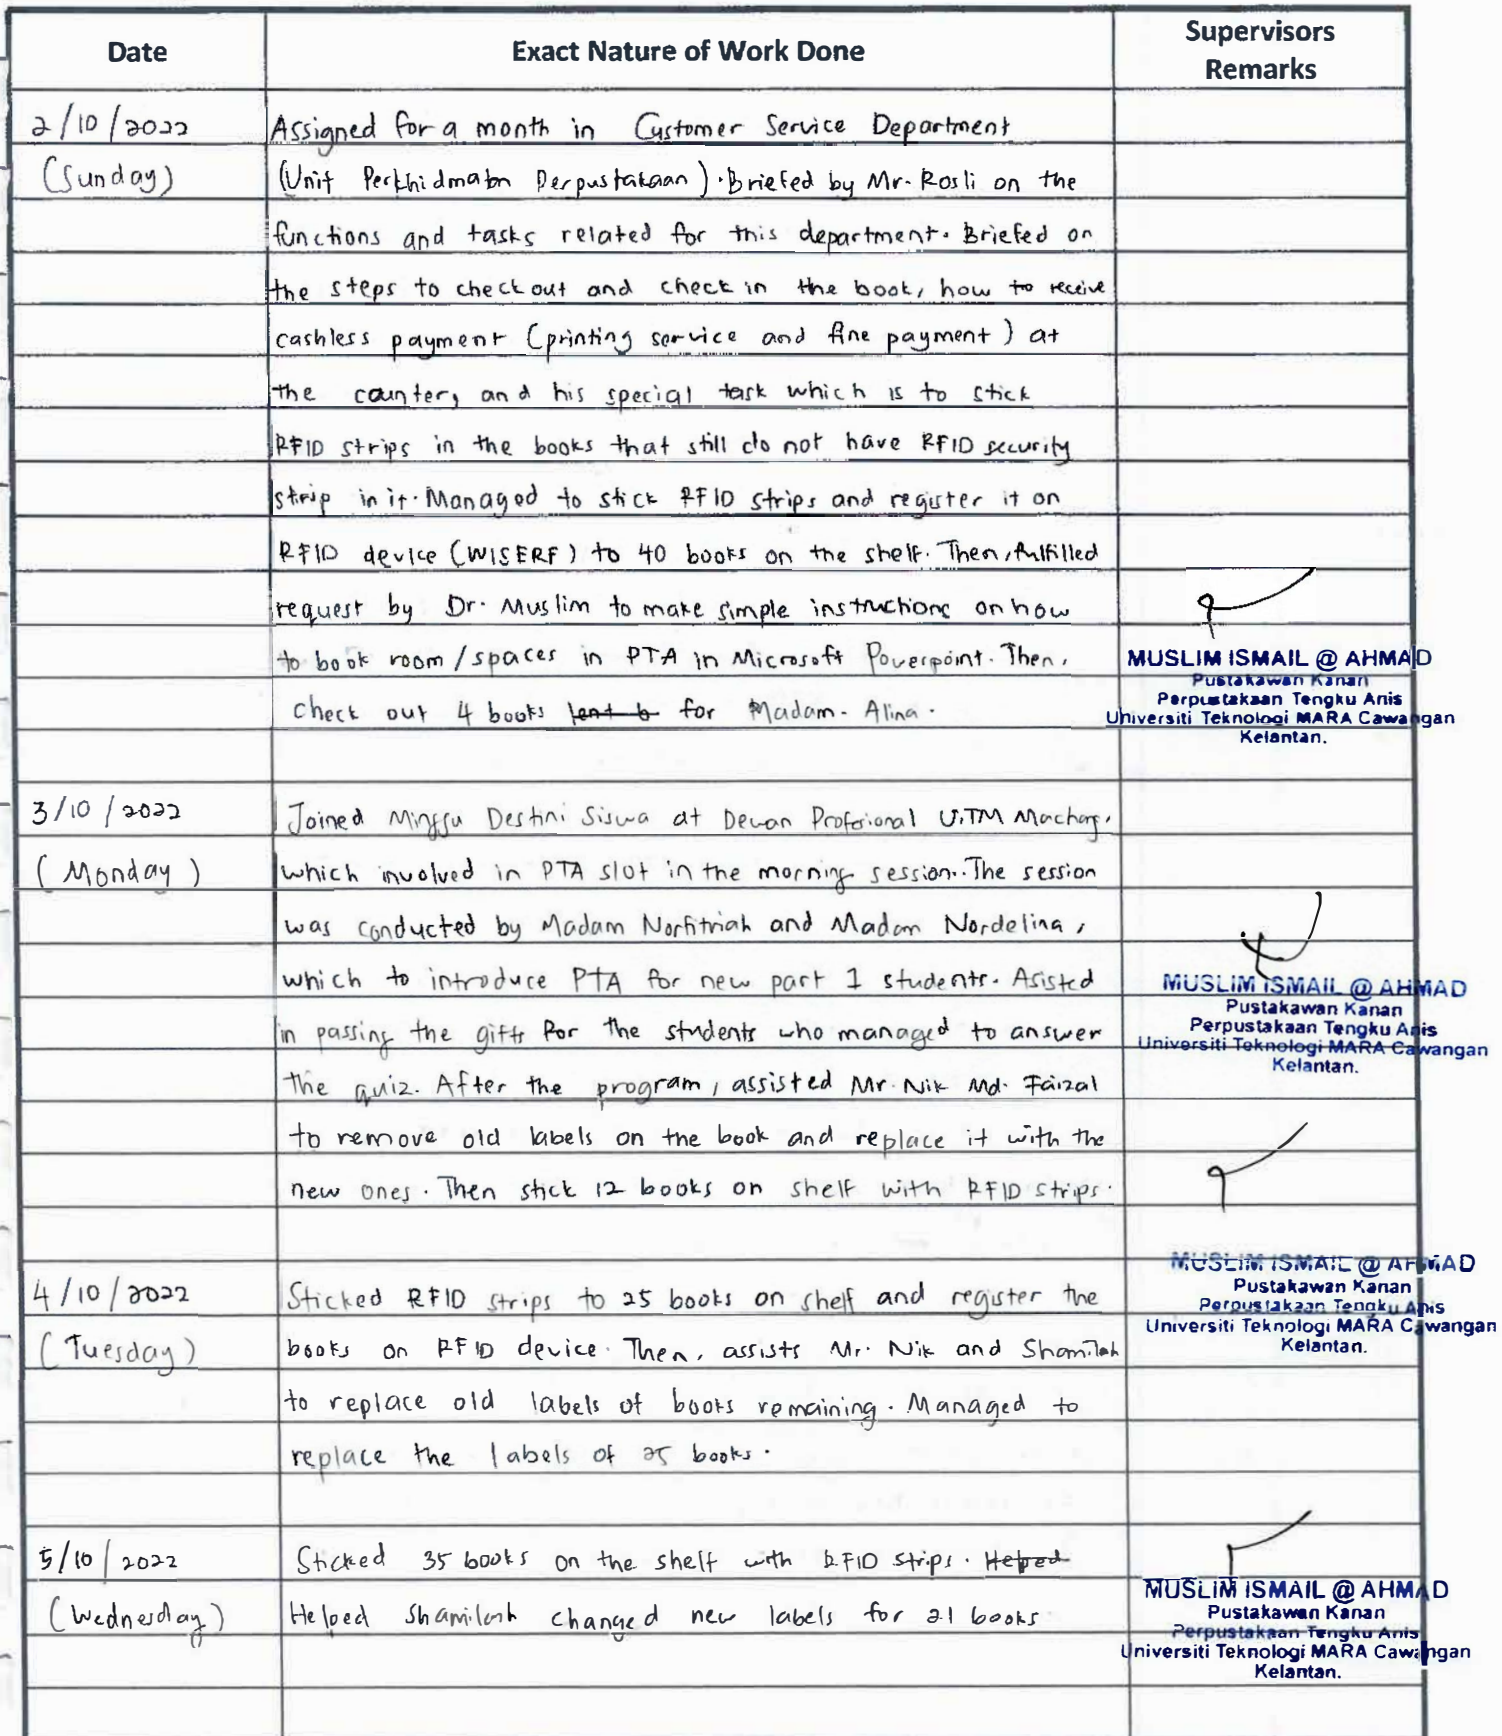 Date
Exact Nature of Work Done
Supervisors
Remarks
2/10/2022
(Sunday)
Assigned for a month in Customer Service Department
(Unit Perkhidmatn Perpustakaan). Briefed by Mr. Rosli on the
functions and tasks related for this department. Briefed on
the steps to check out and check in the book, how to receive
cashless payment (printing service and fine payment) at
the counter, and his special task which is to stick
RFID strips in the books that still do not have RFID security
strip in it. Managed to stick RFID strips and register it on
RFID device (WISERF) to 40 books on the shelf. Then, fulfilled
request by Dr. Muslim to make simple instructions on how
to book room/spaces in PTA in Microsoft Powerpoint. Then,
check out 4 books lent to for Madam. Alina.
MUSLIM ISMAIL @ AHMAD
Pustakawan Kanan
Perpustakaan Tengku Anis
Universiti Teknologi MARA Cawangan
Kelantan.
3/10/2022
(Monday)
Joined Minggu Destini Siswa at Dewan Profesional UiTM Machang,
which involved in PTA slot in the morning session. The session
was conducted by Madam Norfitriah and Madam Nordelina,
which to introduce PTA for new part 1 students. Asisted
in passing the gifts for the students who managed to answer
the quiz. After the program, assisted Mr. Nik Md. Faizal
to remove old labels on the book and replace it with the
new ones. Then stick 12 books on shelf with RFID strips.
MUSLIM ISMAIL @ AHMAD
Pustakawan Kanan
Perpustakaan Tengku Anis
Universiti Teknologi MARA Cawangan
Kelantan.
4/10/2022
(Tuesday)
Sticked RFID strips to 25 books on shelf and register the
books on RFID device. Then, assists Mr. Nik and Shamilah
to replace old labels of books remaining. Managed to
replace the labels of 25 books.
MUSLIM ISMAIL @ AHMAD
Pustakawan Kanan
Perpustakaan Tengku Anis
Universiti Teknologi MARA Cawangan
Kelantan.
5/10/2022
(Wednesday)
Sticked 35 books on the shelf with RFID strips. Helped
Helped Shamilah changed new labels for 21 books
MUSLIM ISMAIL @ AHMAD
Pustakawan Kanan
Perpustakaan Tengku Anis
Universiti Teknologi MARA Cawangan
Kelantan.